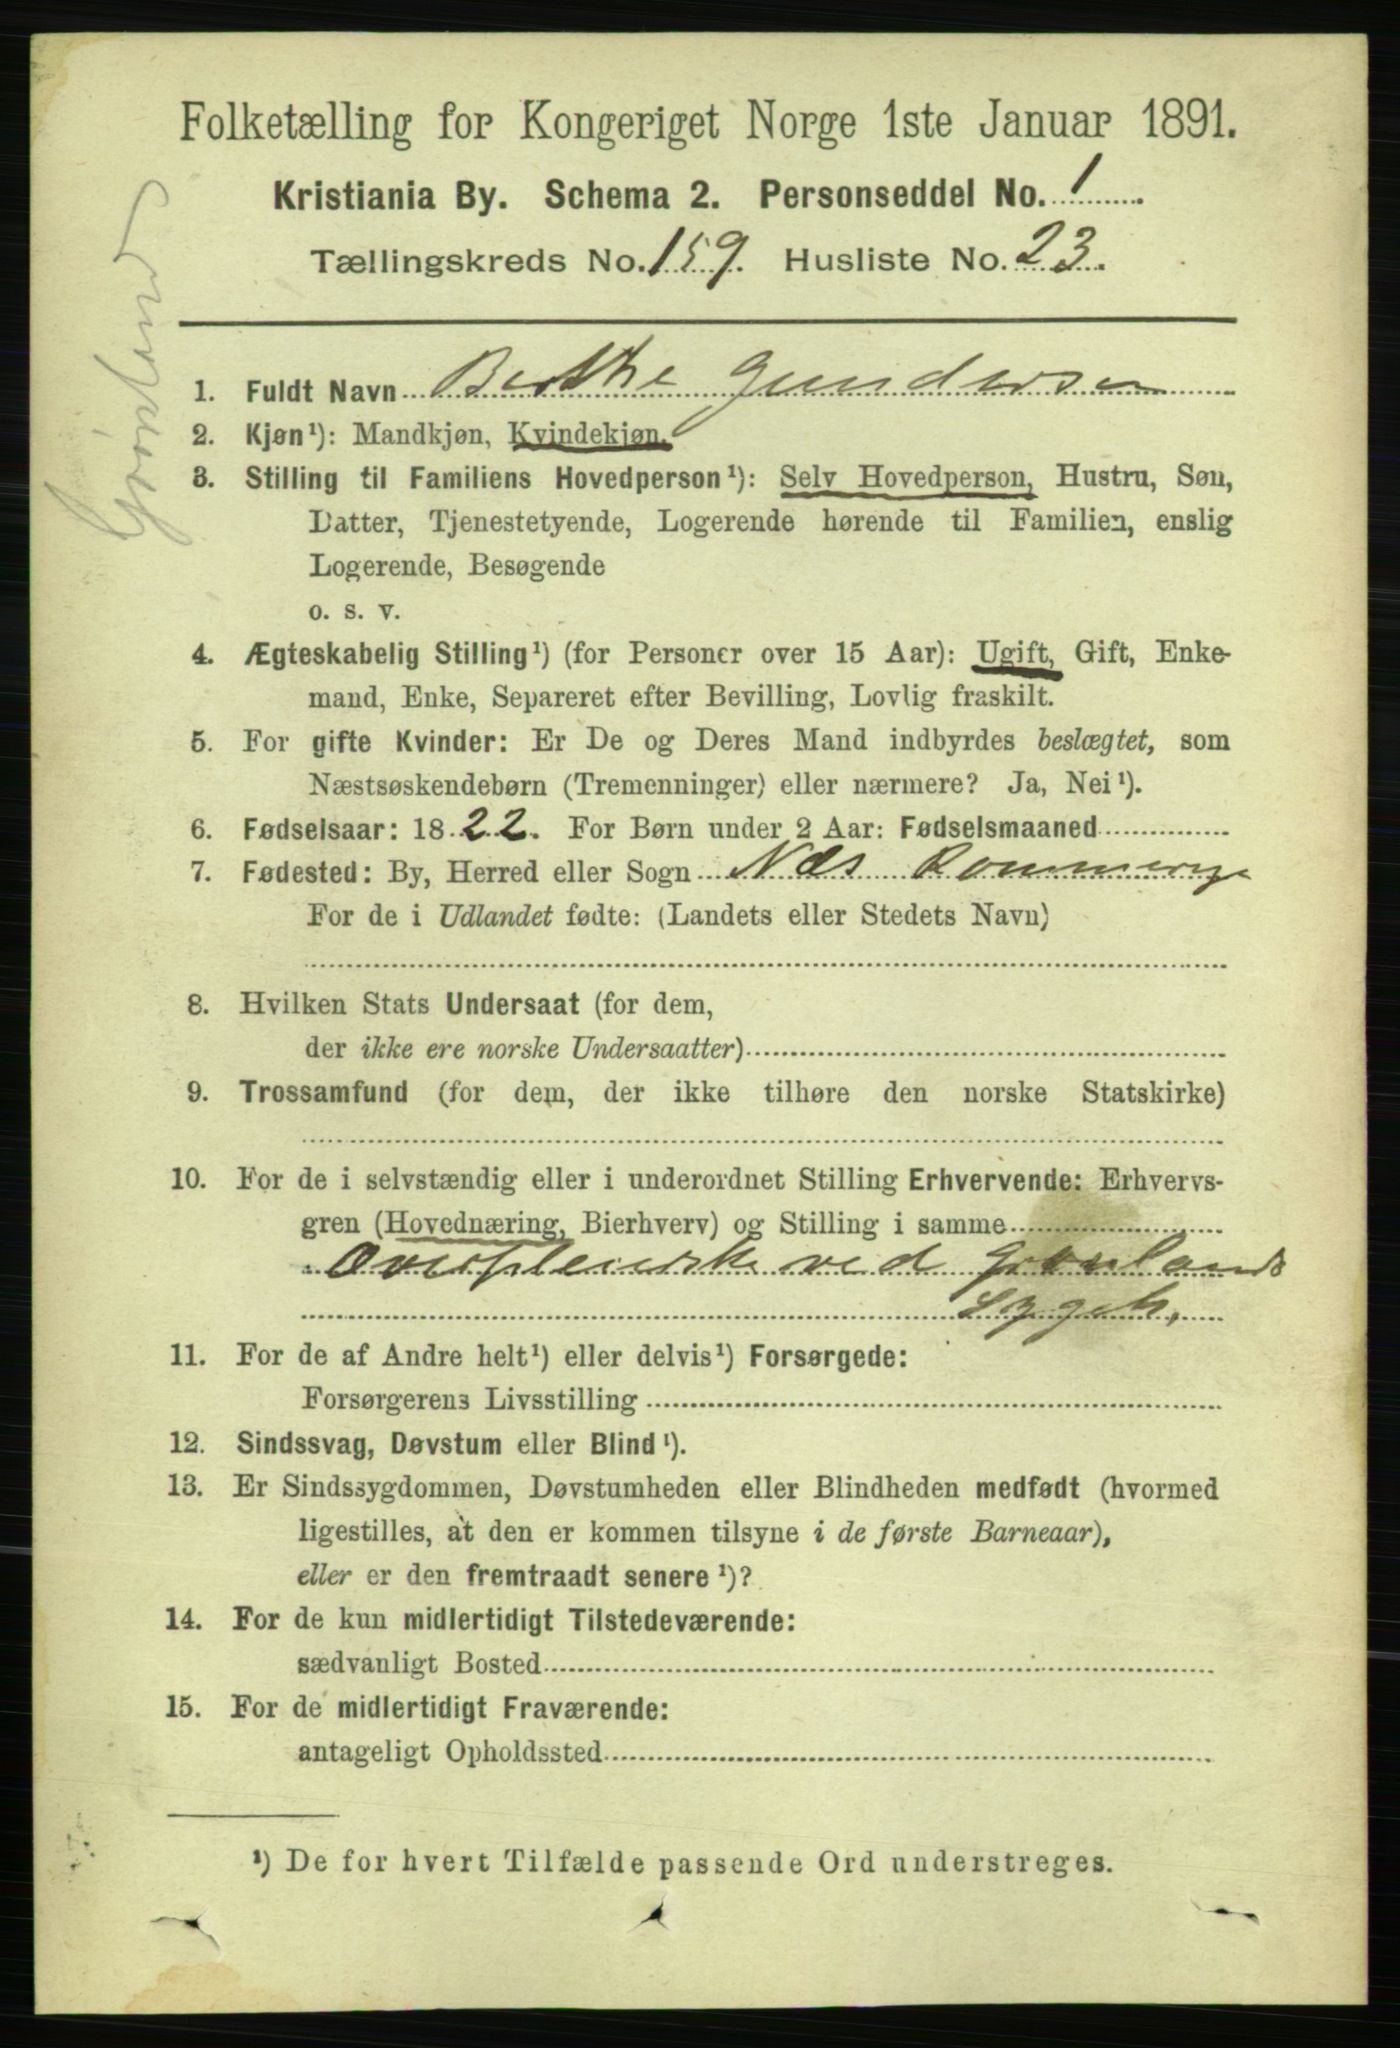 Folketælling for Kongeriget Norge 1ste Januar 1891.
Kristiania By. Schema 2. Personseddel No. 1
Tællingskreds No. 159. Husliste No. 23.
Grönland
1. Fuldt Navn Berthe Gundersen
2. Kjøn¹): Mandkjøn, Kvindekjøn.
3. Stilling til Familiens Hovedperson¹): Selv Hovedperson, Hustru, Søn,
Datter, Tjenestetyende, Logerende hørende til Familien, enslig
Logerende, Besøgende
o. s. v.
4. Ægteskabelig Stilling¹) (for Personer over 15 Aar): Ugift, Gift, Enke-
mand, Enke, Separeret efter Bevilling, Lovlig fraskilt.
5. For gifte Kvinder: Er De og Deres Mand indbyrdes beslægtet, som
Næstsøskendebørn (Tremenninger) eller nærmere? Ja, Nei¹).
6. Fødselsaar: 1822. For Børn under 2 Aar: Fødselsmaaned
7. Fødested: By, Herred eller Sogn Næs Rommerige
For de i Udlandet fødte: (Landets eller Stedets Navn)
8. Hvilken Stats Undersaat (for dem,
der ikke ere norske Undersaatter)
9. Trossamfund (for dem, der ikke tilhøre den norske Statskirke)
10. For de i selvstændig eller i underordnet Stilling Erhvervende: Erhvervs-
gren (Hovednæring, Bierhverv) og Stilling i samme
Overpleierske ved Grønlands
Sygeh.
11. For de af Andre helt¹) eller delvis¹) Forsørgede:
Forsørgerens Livsstilling
12. Sindssvag, Døvstum eller Blind¹).
13. Er Sindssygdommen, Døvstumheden eller Blindheden medfødt (hvormed
ligestilles, at den er kommen tilsyne i de første Barneaar),
eller er den fremtraadt senere¹)?
14. For de kun midlertidigt Tilstedeværende:
sædvanligt Bosted
15. For de midlertidigt Fraværende:
antageligt Opholdssted
¹) De for hvert Tilfælde passende Ord understreges.